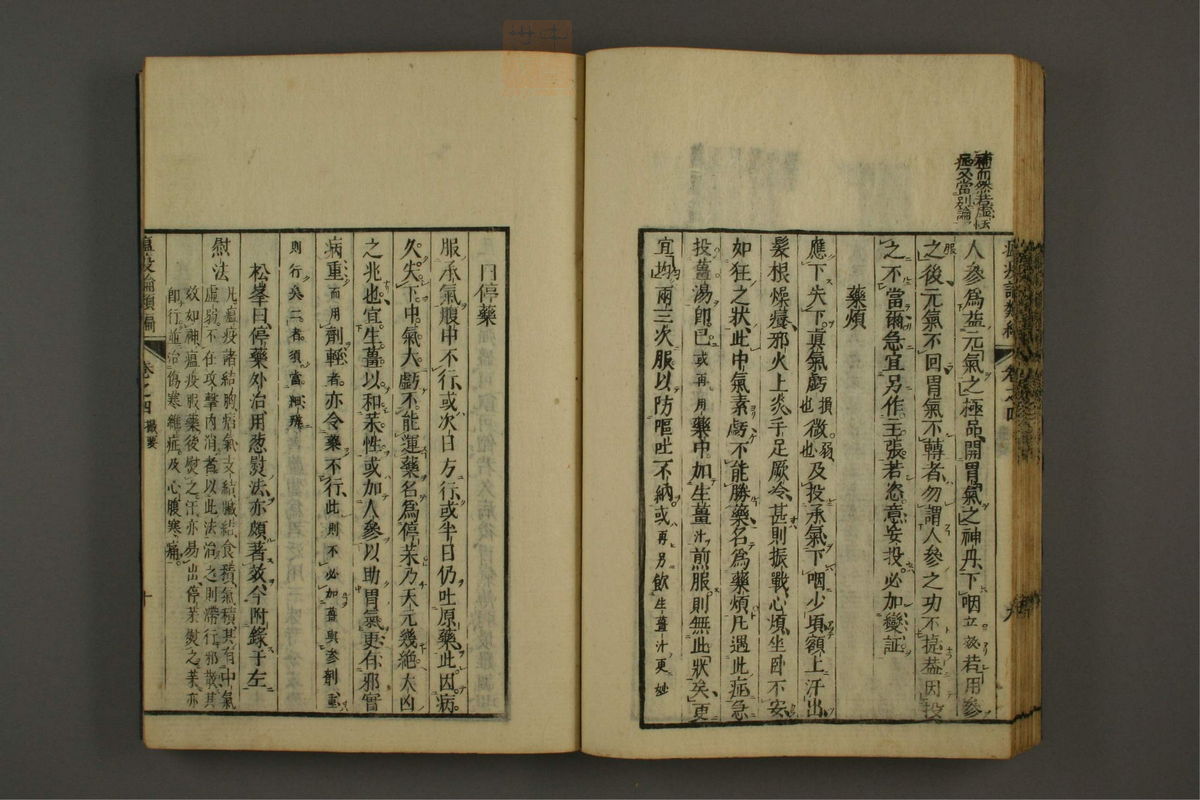 補而然若虛怯
瘟又當別論
瘟疫論類編
卷之四
九
人參爲益元氣之極品開胃氣之神丹下咽立效若用參
之後元氣不回胃氣不轉者勿謂人參之功不捷蓋因投
服
之不當爾急宜另作主張若恣意妄投必加變証
藥煩
應下失下眞氣虧損也微弱也及投承氣下咽少頃額上汗出
髮根燥癢邪火上炎手足厥冷甚則振戰心煩坐臥不安
如狂之狀此中氣素虧不能勝藥名爲藥煩凡遇此症急
投薑湯卽已或再用藥中加生薑汁煎服則無此狀矣更
宜均兩三次服以防嘔吐不納或再另飲生薑汁更妙
停藥
服承氣腹中不行或次日方行或半日仍吐原藥此因病
久失下中氣大虧不能運藥名爲停藥乃天元幾絶大凶
之兆也宜生薑以和藥性或加人參以助胃氣更有邪實
病重而用劑輕者亦令藥不行此則不必加薑與參劑重
則行矣二者須當細辨
松峯曰停藥外治用葱熨法亦頗著效今附錄于左
熨法
凡瘟疫諸結胸痞氣支結臟結食積氣積其有中氣
虛弱不在攻擊內消者以此法治之則滯行邪散其
效如神瘟疫服藥後熨之汗亦易出停藥熨之藥亦
卽行並治傷寒雜症及心腹寒痛
瘟疫論類編
卷之四
撮要
十